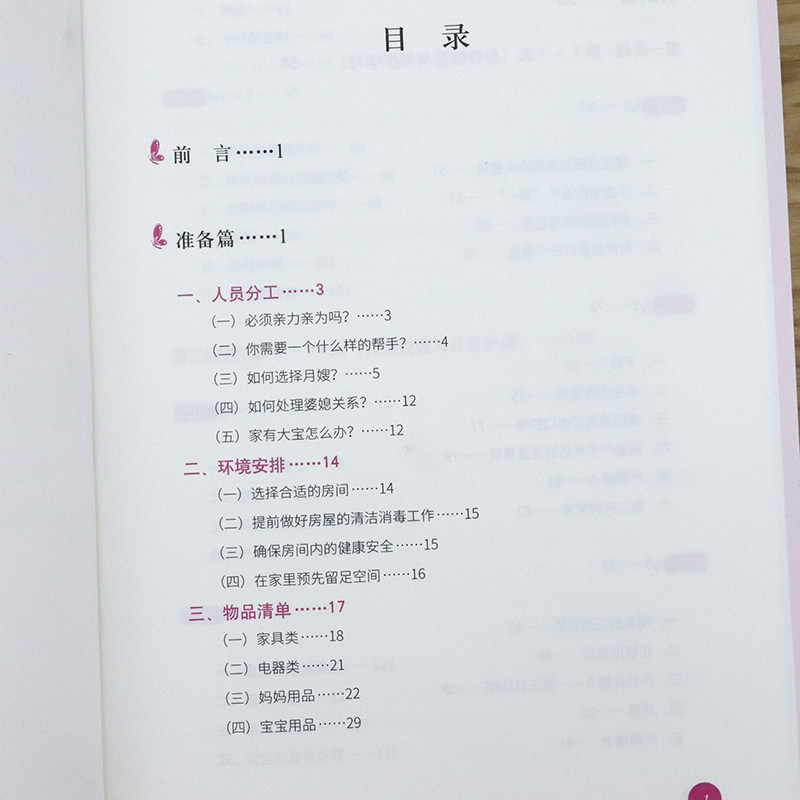 目 录
前 言……1
准备篇……1
一、人员分工……3
（一）必须亲力亲为吗？……3
（二）你需要一个什么样的帮手？……4
（三）如何选择月嫂？……5
（四）如何处理婆媳关系？……12
（五）家有大宝怎么办？……12
二、环境安排……14
（一）选择合适的房间……14
（二）提前做好房屋的清洁消毒工作……15
（三）确保房间内的健康安全……15
（四）在家里预先留足空间……16
三、物品清单……17
（一）家具类……18
（二）电器类……21
（三）妈妈用品……22
（四）宝宝用品……29
1